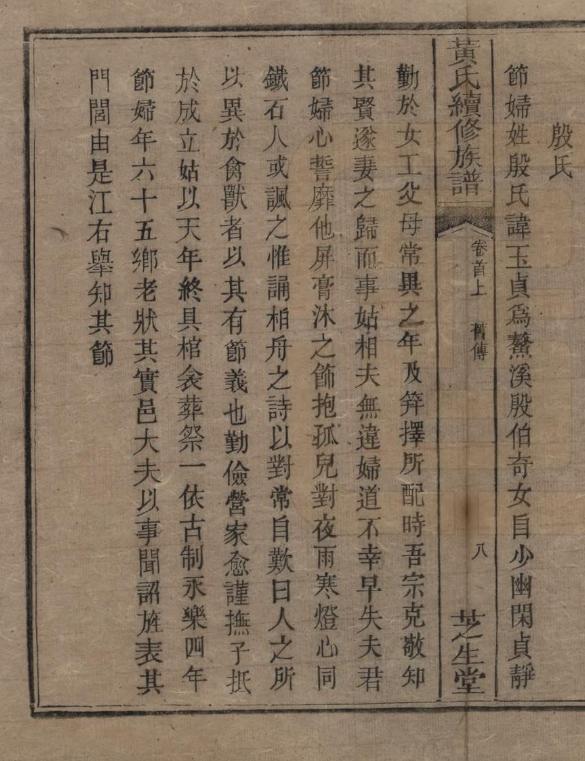 殷氏
節婦姓殷氏諱玉貞爲鰲溪殷伯奇女自少幽閑貞靜
黃氏續修族譜 卷首上 舊傳 八 芝生堂
勤於女工父母常異之年及笄擇所配時吾宗克敬知
其賢遂妻之歸而事姑相夫無違婦道不幸早失夫君
節婦心誓靡他屏膏沐之飾抱孤兒對夜雨寒燈心同
鐵石人或諷之惟誦柏舟之詩以對常自歎曰人之所
以異於禽獸者以其有節義也勤儉營家愈謹撫子抵
於成立姑以天年終具棺衾葬祭一依古制永樂四年
節婦年六十五鄉老狀其實邑大夫以事聞詔旌表其
門閭由是江右舉知其節